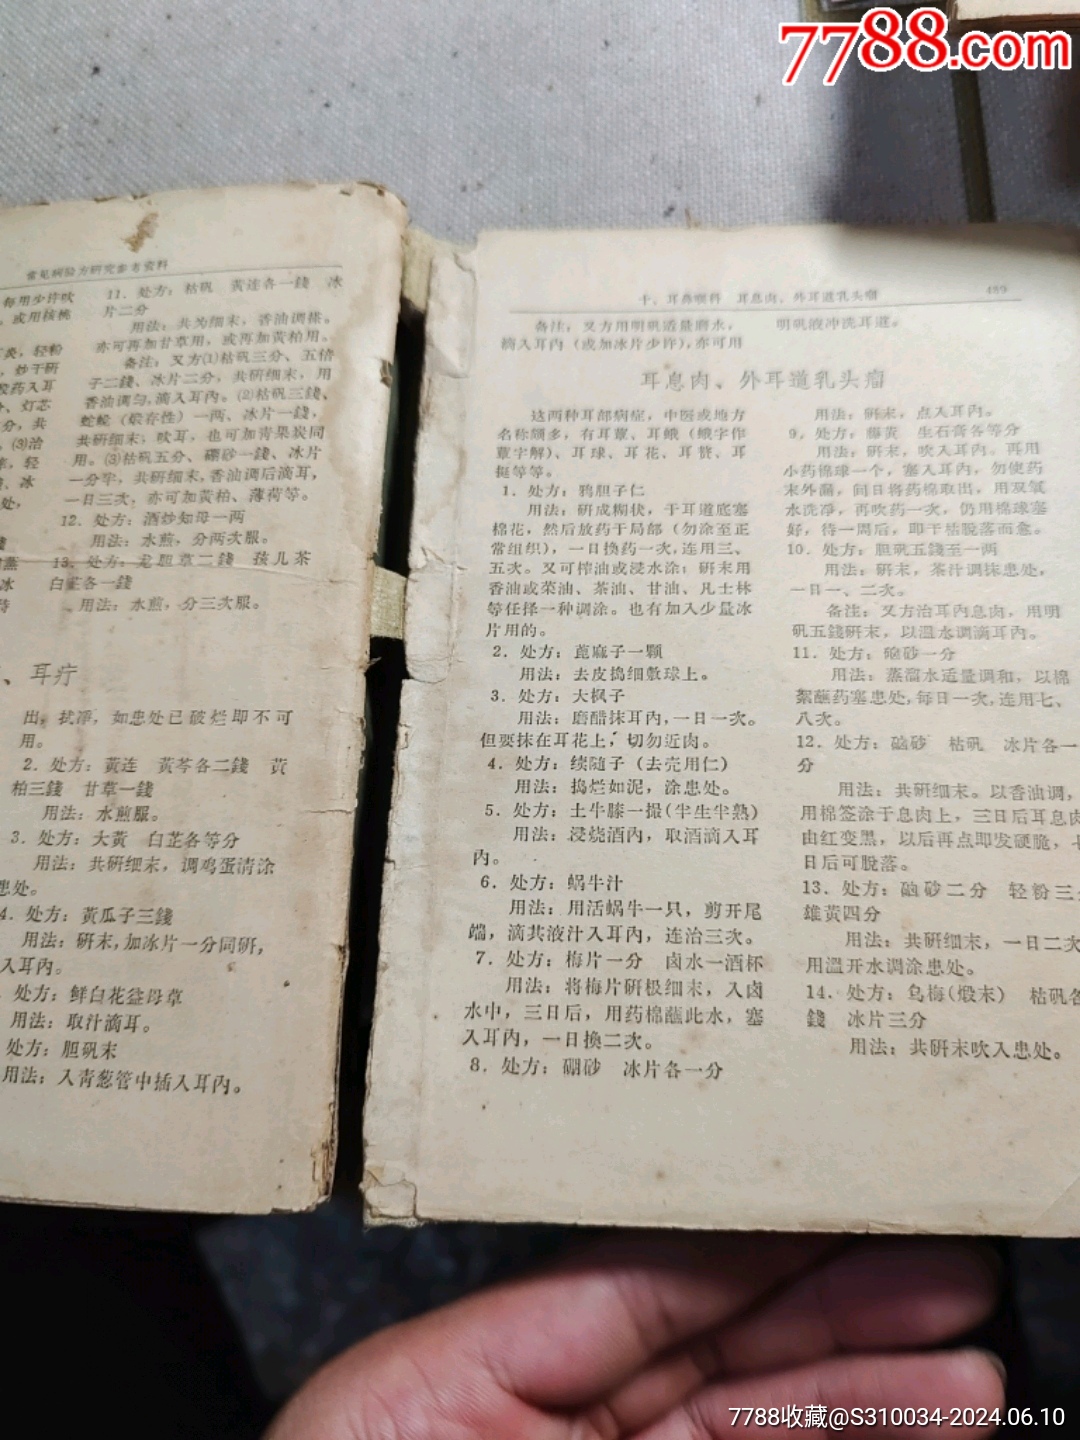 7788.com
常见病验方研究参考资料
每用少许吹
或用核桃
炎，轻粉
炒干研
药入耳
、灯芯
分，共
(3)治
轻
冰
处，
11．处方：枯矾　黄连各一錢　冰
片二分
用法：共为细末，香油调搽。
亦可再加甘草用，或再加黄柏用。
备注：又方(1)枯矾三分、五倍
子二錢、冰片二分，共研细末，用
香油调匀，滴入耳內。(2)枯矾三錢、
蛇蜕（煅存性）一两、冰片一錢，
共研细末，吹耳，也可加青果炭同
用。(3)枯矾五分、硼砂一錢、冰片
一分半，共研细末，香油调后滴耳，
一日三次，亦可加黄柏、薄荷等。
12．处方：酒炒知母一两
用法：水煎，分两次服。
13．处方：龙胆草二錢　孩儿茶
白芷各一錢
用法：水煎，分三次服。
、耳疔
出，拭凈，如患处已破烂即不可
用。
2．处方：黄连　黄芩各二錢　黄
柏三錢　甘草一錢
用法：水煎服。
3．处方：大黄　白芷各等分
用法：共研细末，调鸡蛋清涂
患处。
4．处方：黄瓜子三錢
用法：研末，加冰片一分同研，
入耳內。
处方：鲜白花益母草
用法：取汁滴耳。
处方：胆矾末
用法：入青葱管中插入耳內。
十、耳鼻咽科　耳息肉、外耳道乳头瘤
489
备注：又方用明矾适量磨水，
滴入耳內（或加冰片少许），亦可用
明矾液冲洗耳道。
耳息肉、外耳道乳头瘤
这两种耳部病症，中医或地方
名称颇多，有耳蕈、耳蛾（蛾字作
蕈字解）、耳球、耳花、耳贅、耳
挺等等。
1．处方：鸦胆子仁
用法：研成糊状，于耳道底塞
棉花，然后放药于局部（勿涂至正
常组织），一日換药一次，连用三、
五次。又可榨油或浸水涂；研末用
香油或菜油、茶油、甘油、凡士林
等任择一种调涂。也有加入少量冰
片用的。
2．处方：蓖麻子一颗
用法：去皮捣细敷球上。
3．处方：大枫子
用法：磨醋抹耳內，一日一次。
但要抹在耳花上，切勿近肉。
4．处方：续随子（去壳用仁）
用法：捣烂如泥，涂患处。
5．处方：土牛膝一撮（半生半熟）
用法：浸烧酒內，取酒滴入耳
內。
6．处方：蜗牛汁
用法：用活蜗牛一只，剪开尾
端，滴其液汁入耳內，连治三次。
7．处方：梅片一分　卤水一酒杯
用法：将梅片研极细末，入卤
水中，三日后，用药棉蘸此水，塞
入耳內，一日換二次。
8．处方：硼砂　冰片各一分
用法：研末，点入耳內。
9．处方：藤黄　生石膏各等分
用法：研末，吹入耳內。再用
小药棉球一个，塞入耳內，勿使药
末外漏，间日将药棉取出，用双氧
水洗凈，再吹药一次，仍用棉球塞
好，待一周后，即干枯脫落而愈。
10．处方：胆矾五錢至一两
用法：研末，茶汁调抹患处，
一日一、二次。
备注：又方治耳內息肉，用明
矾五錢研末，以溫水调滴耳內。
11．处方：硇砂一分
用法：蒸溜水适量调和，以棉
絮蘸药塞患处，每日一次，连用七、
八次。
12．处方：硇砂　枯矾　冰片各一
分
用法：共研细末。以香油调，
用棉签涂于息肉上，三日后耳息肉
由红变黑，以后再点即发硬脆，七
日后可脫落。
13．处方：硇砂二分　轻粉三分
雄黄四分
用法：共研细末，一日二次
用溫开水调涂患处。
14．处方：乌梅（煅末）　枯矾各
錢　冰片三分
用法：共研末吹入患处。
7788收藏@S310034-2024.06.10